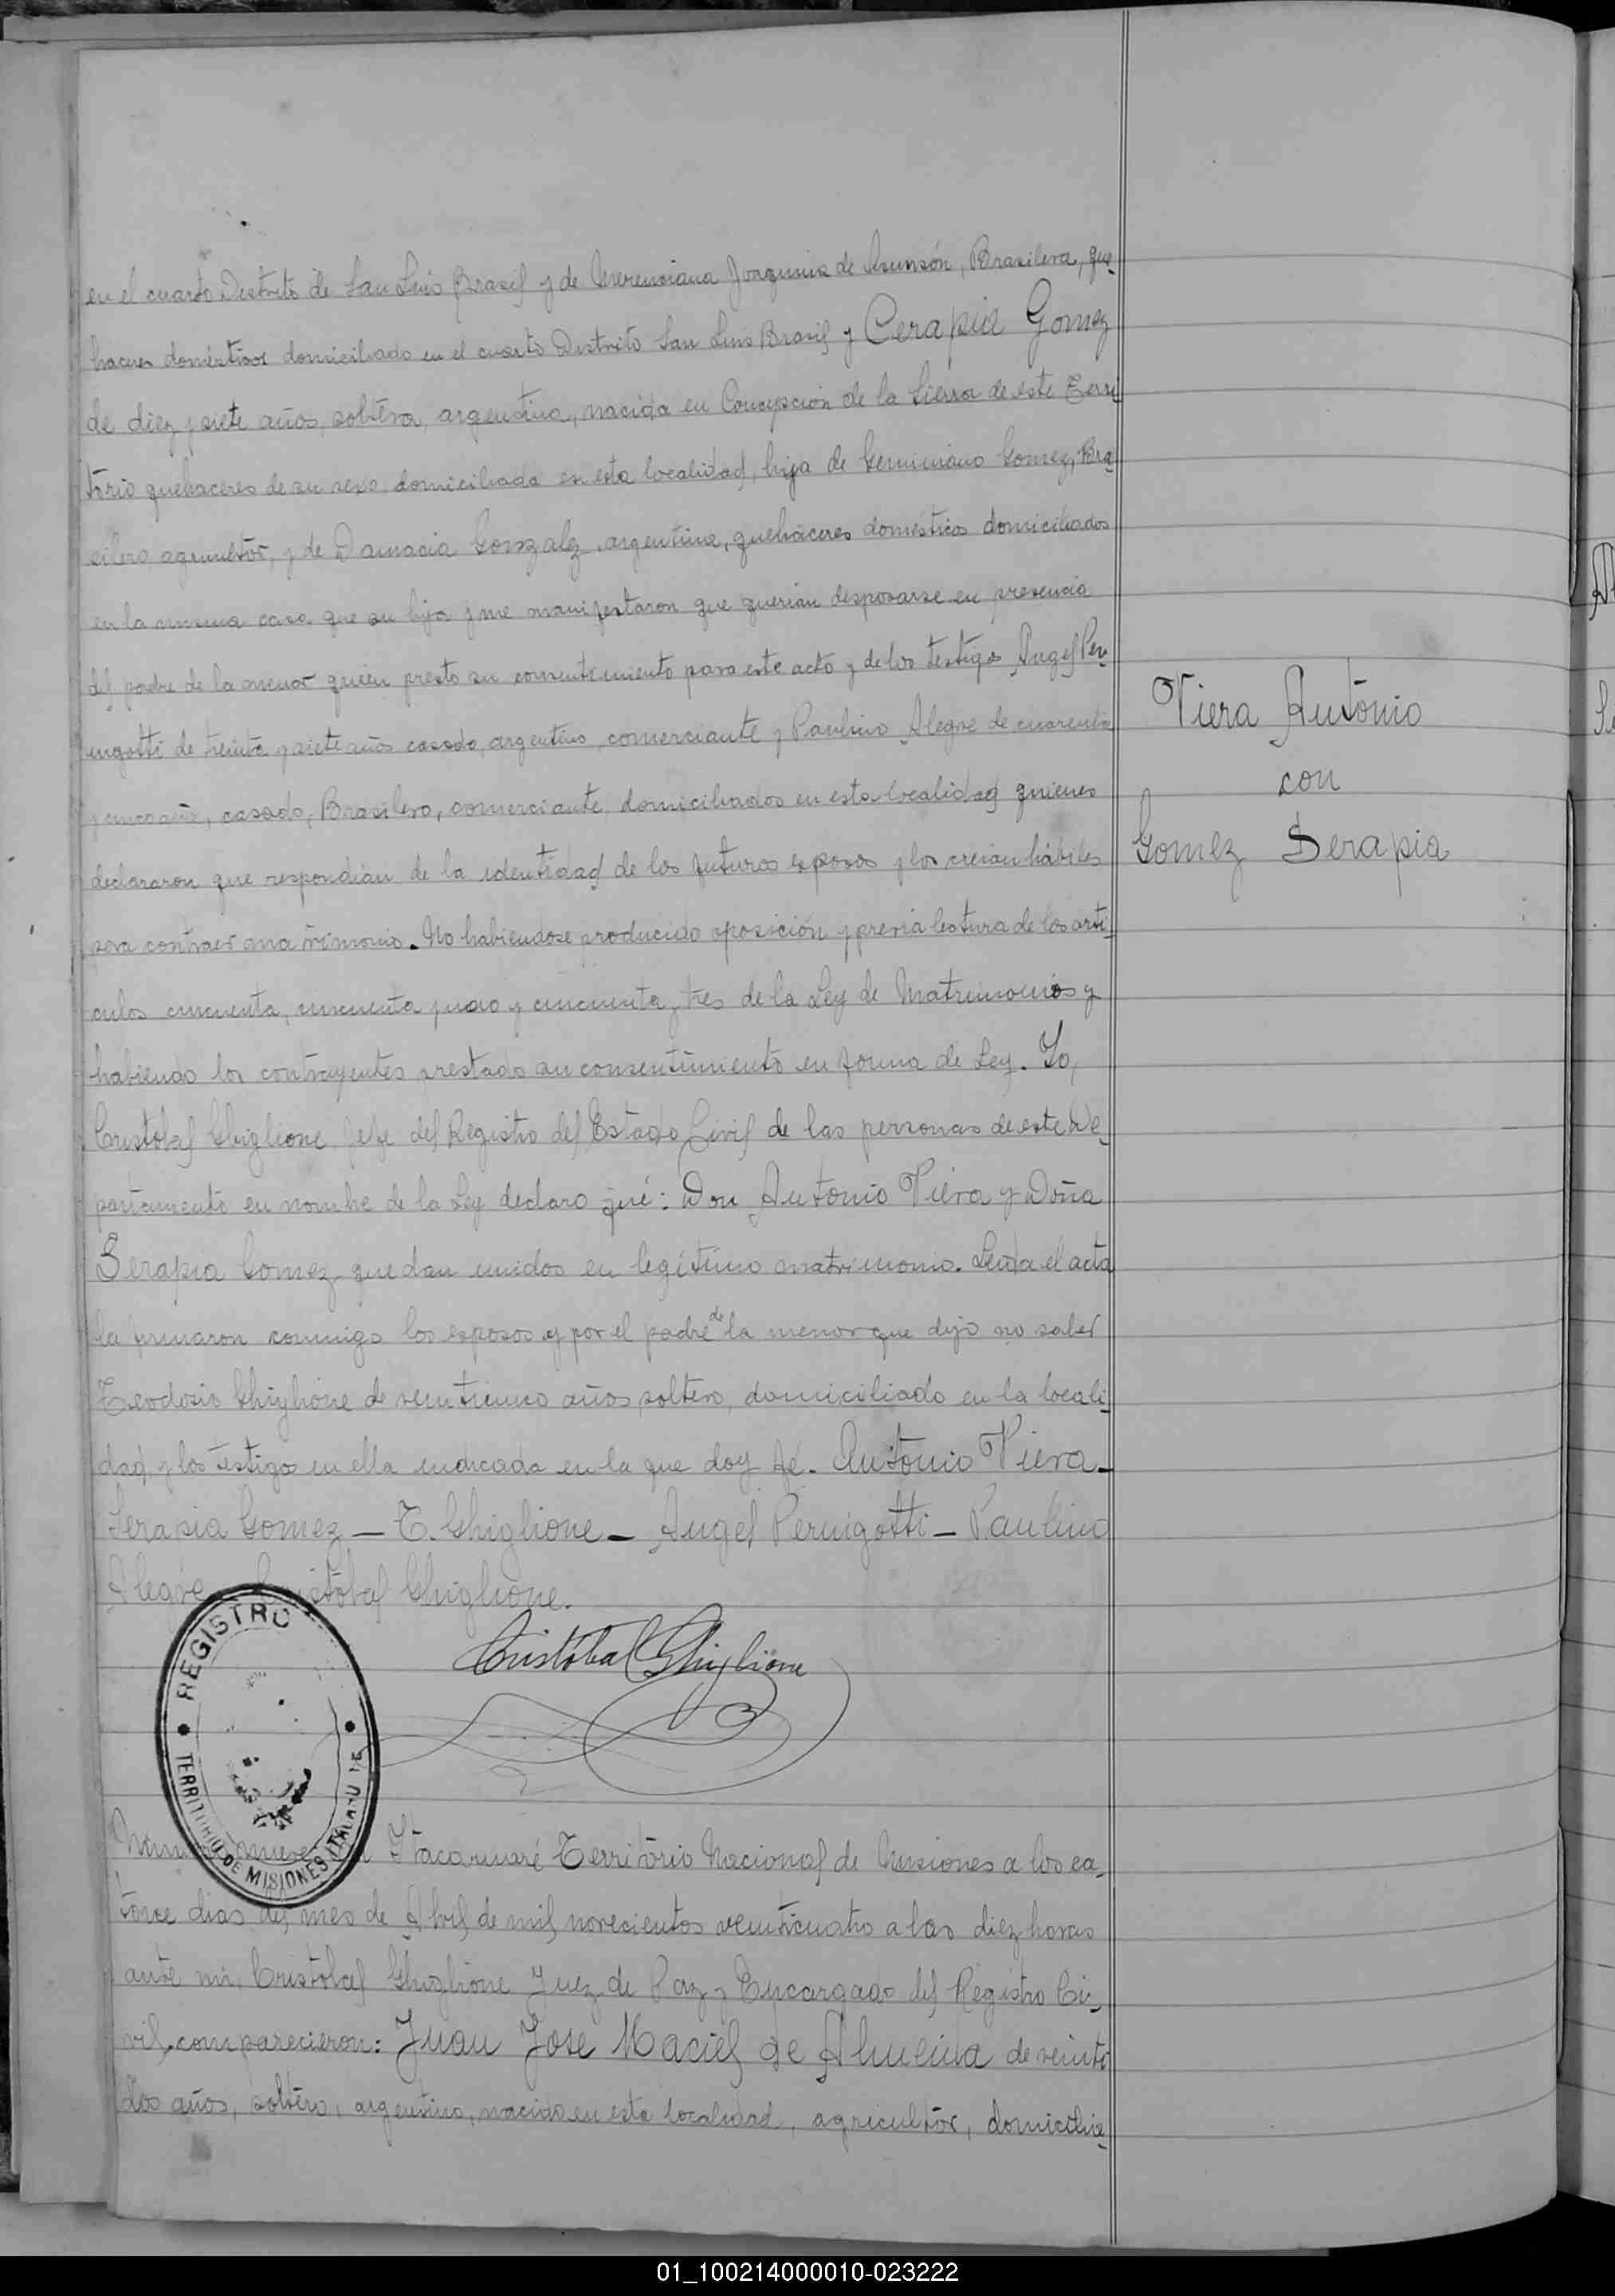 en el cuarto Distrito de San Luis Brasil y de Merenciana Joaquina de Asunsón, Brasilera, que-
haceres domésticos domiciliado en el cuarto Distrito San Luis Brasil y Cerapia Gomez
de diez y siete años, soltera, argentina, nacida en Concepción de la Sierra de este Terri
torio quehaceres de su sexo domiciliada en esta localidad, hija de Geminiano Gomez, Bra-
silero, agricultor, y de Damacia Gonzalez, argentina, quehaceres domésticos domiciliados
en la misma casa que su hija y me manifestaron que querian desposarse en presencia
del padre de la menor quien presto su consentimiento para este acto y de los testigos Angel Per-
nigotti de treinta y siete años casado, argentino, comerciante y Paulino Alegre de cuarenta
y casado, Brasilero, comerciante, domiciliados en esta localidad quienes
declararon que respondian de la identidad de los futuros esposos y los creian hábiles
para contraer matrimonio. No habiendose producido oposición y previa lectura de los artí-
culos cincuenta, cincuenta y uno y cincuenta y tres de la Ley de Matrimonios y
habiendo los contrayentes prestado su consentimiento en forma de Ley. Yo,
Cristobal Ghiglione Jefe del Registro del Estado Civil de las personas de este De-
partamento en nombre de la Ley declaro qué: Don Antonio Viera y Doña
Serapia Gomez quedan unidos en legítimo matrimonio. Leida el acta
la firmaron conmigo los esposos y por el padre de la menor que dijo no saber
Teodosio Ghiglione de años, soltero, domiciliado en la locali-
dad, y los testigos en ella indicada en la que doy fé. Antonio Viera-
Serapia Gomez - T. Ghiglione - Angel Pernigotti - Paulino
Alegre Cristobal Ghiglione.
Cristóbal Ghiglione
REGISTRO
TERRITORIO DE MISIONES
Itacaruaré Territorio Nacional de Misiones a los ca-
torce dias del mes de Abril de mil novecientos veinticuatro a las diez horas
ante mi, Cristobal Ghiglione Juez de Paz y Encargado del Registro Ci-
vil, comparecieron: Juan Jose Maciel de Almeida de veinti
dos años, soltero, argentino, nacido en esta localidad, agricultor, domicilia-
Viera Antonio
con
Gomez Serapia
01_100214000010-023222